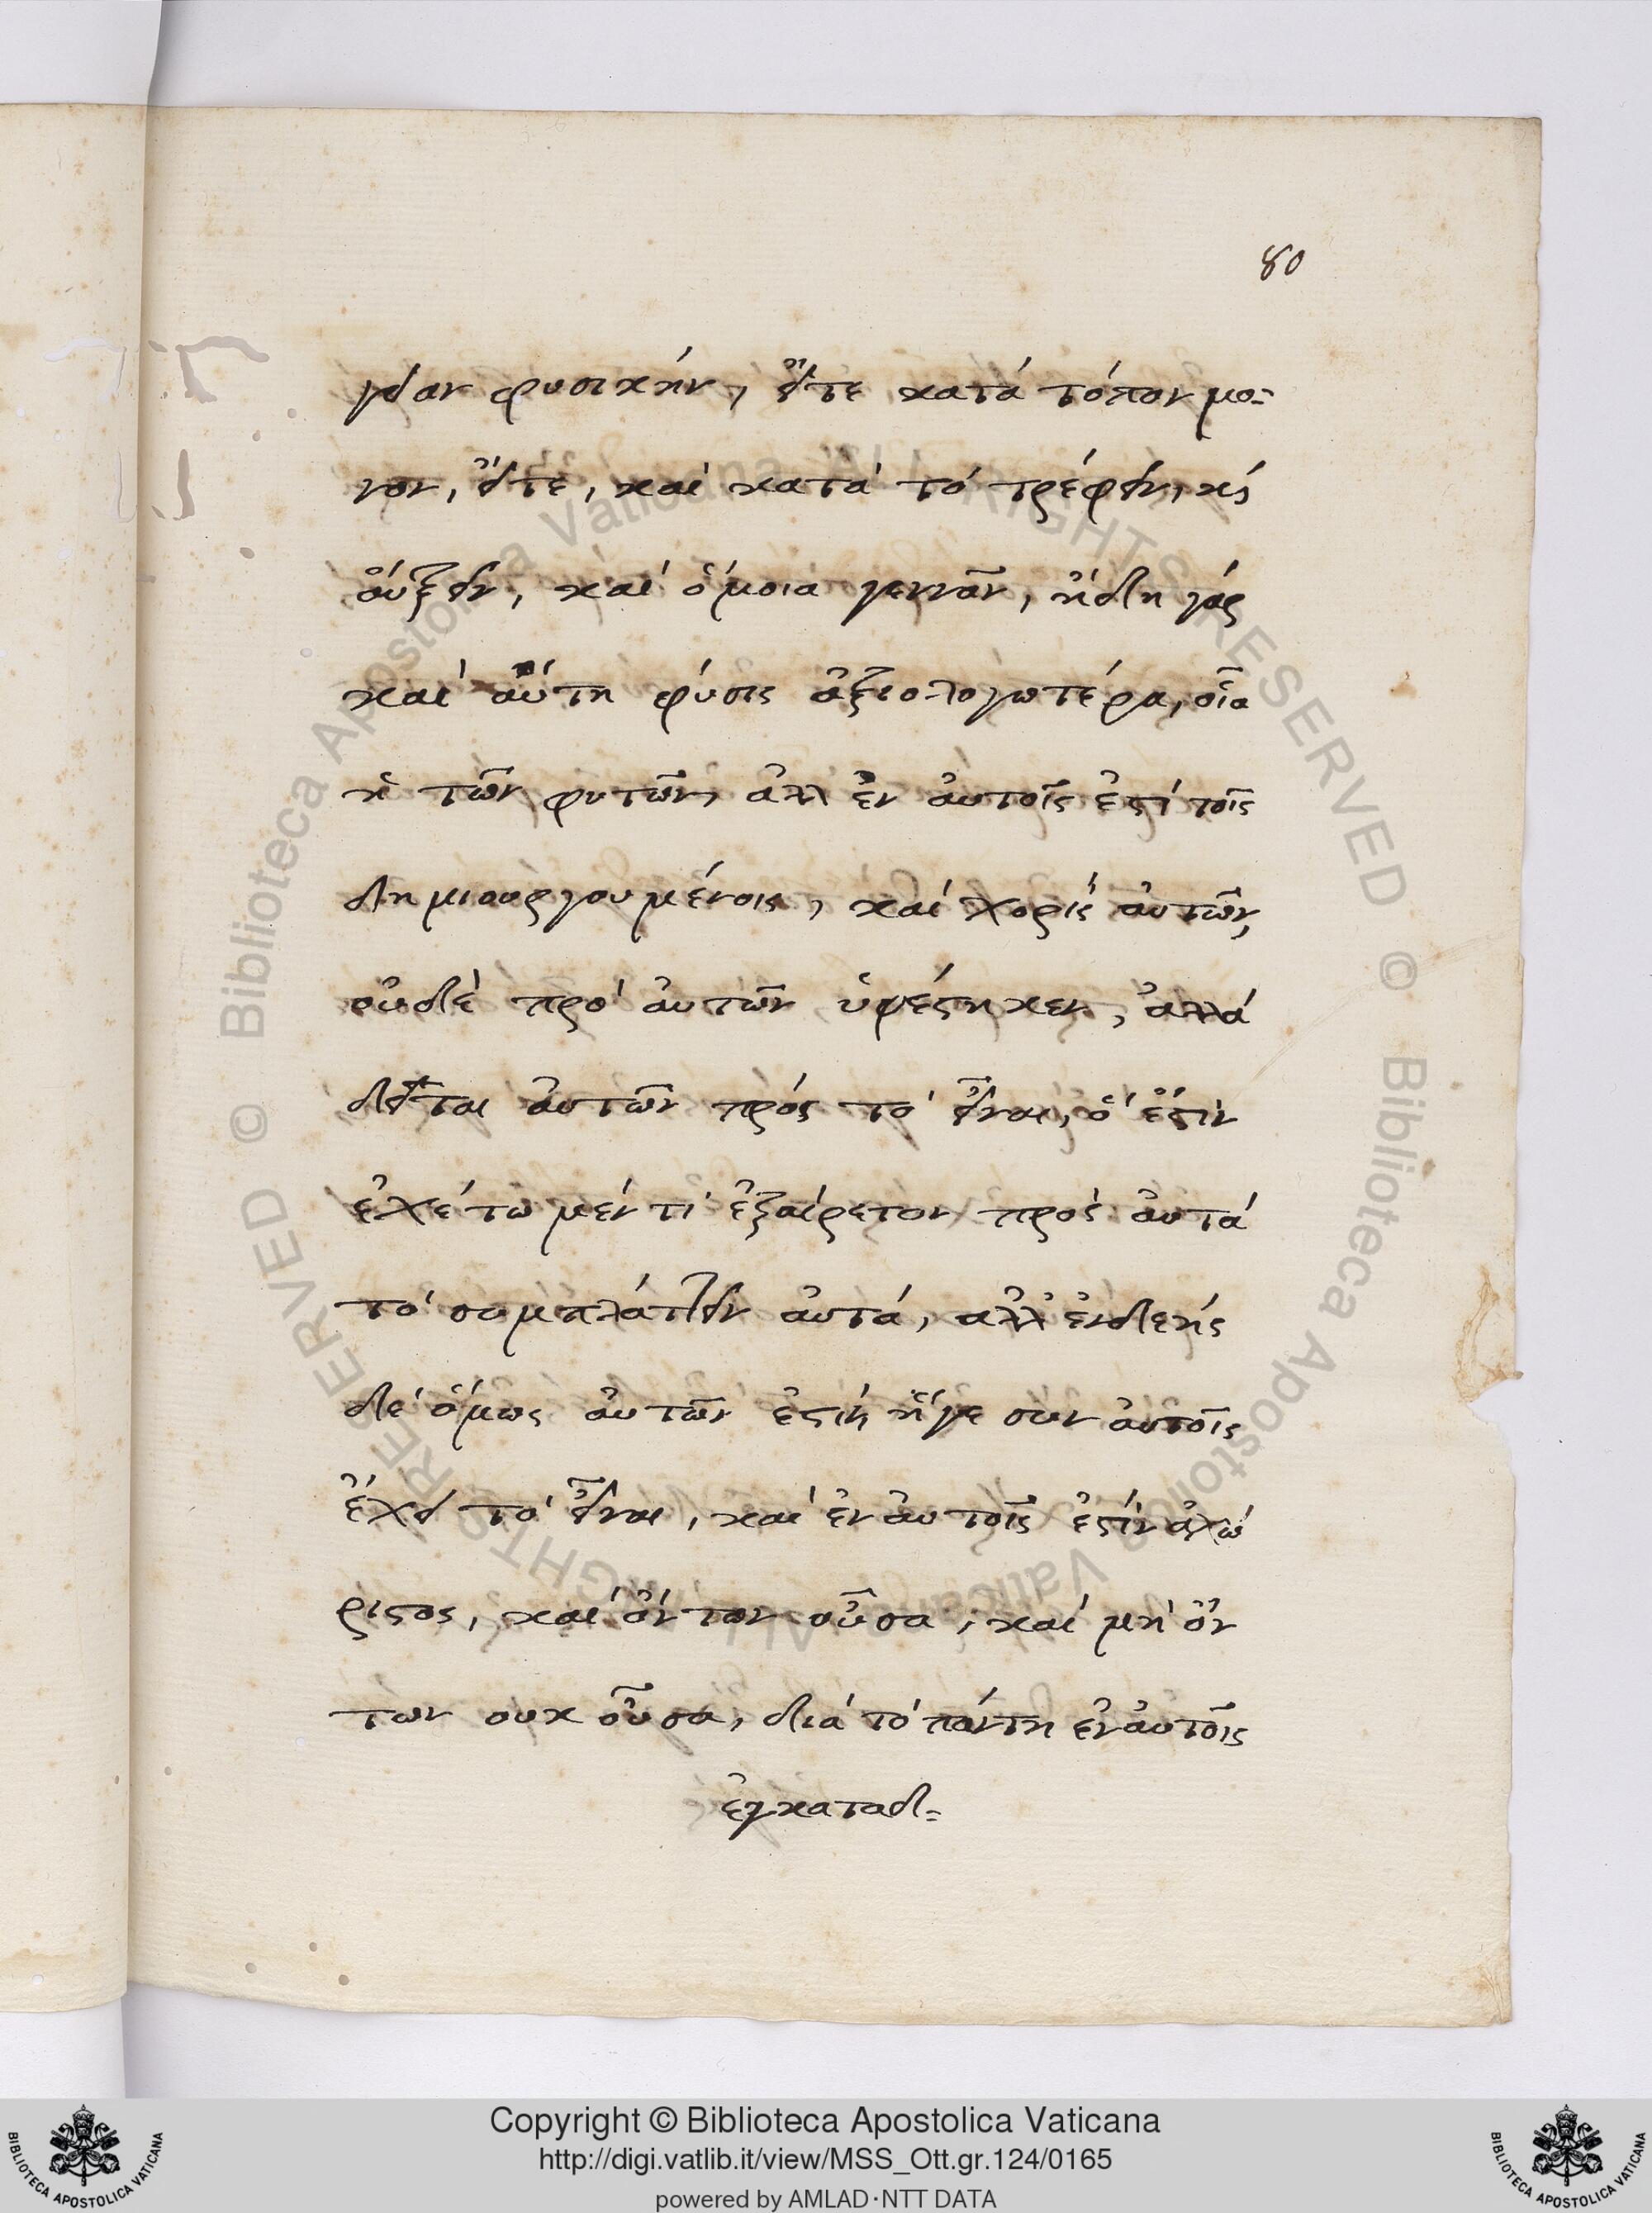 80
γειαν φυσικὴν, εἴτε κατά τόπον μο=
νον, εἴτε, καὶ κατά τό τρέφειν, κ̀
αὔξειν, καί ὅμοια γεννᾶν, ἤδη γάρ
καί αὕτη φύσις ἀξιολογωτέρα, οἷα
ἡ τῶν φυτῶν, ἀλλ ἐν ἀυτοῖς ἐστί τοῖς
δημιουργουμένοις, καί χορίς ἀυτῶν,
οὐδέ πρό ἀυτῶν ὑφέστηκεν, ἀλλά
δεῖται ἀυτῶν πρός τό εἶναι, ὅ ἔστιν
ἐχέτω μέν τί ἐξαίρετον πρός ἀυτά
τό συμπλάττειν ἀυτά, ἀλλ ἐνδεής
δέ ὅμως ἀυτῶν ἐστίν, ἥγε σύν ἀυτοῖς
ἔχει τό εἶναι, καί ἐν ἀυτοῖς ἐστίν ἀχώ
ριστος, καί ὄντων οὖσα, καί μή ὄν
των ουκ οὖσα, διά τό πάντη ἐν ἀυτοῖς
ἐγκαταδ=
Copyright © Biblioteca Apostolica Vaticana
http://digi.vatlib.it/view/MSS_Ott.gr.124/0165
powered by AMLAD·NTT DATA
BIBLIOTECA APOSTOLICA VATICANA
BIBLIOTECA APOSTOLICA VATICANA
© Biblioteca Apostolica Vaticana ALL RIGHTS RESERVED
© Biblioteca Apostolica Vaticana ALL RIGHTS RESERVED